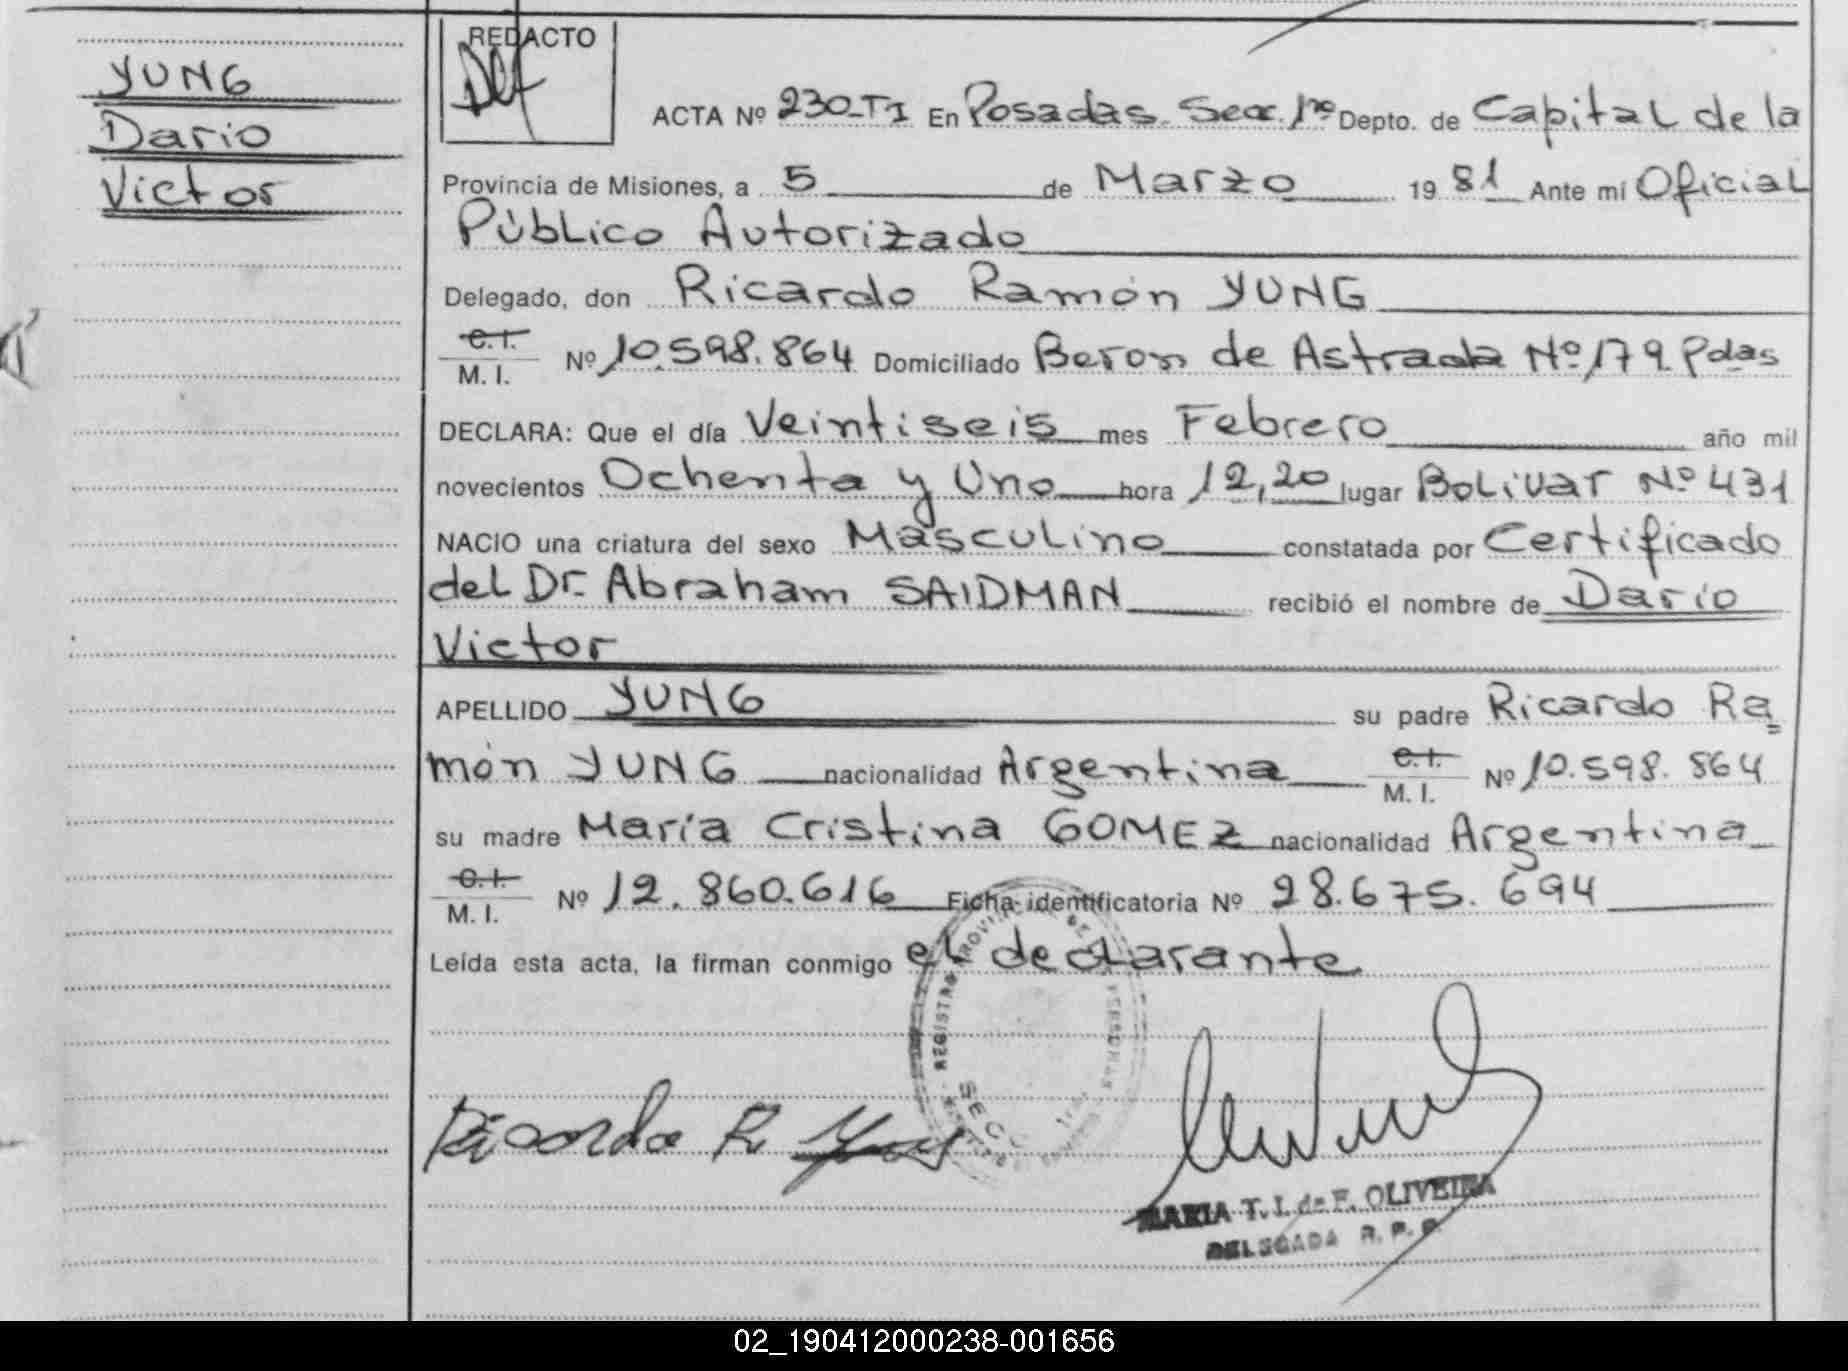 YUNG
Dario
Victor
REDACTO
ACTA Nº 230-T1 En Posadas. Secc. 1ra Depto. de Capital de la
Provincia de Misiones, a 5 de Marzo 1981 Ante mí Oficial
Público Autorizado
Delegado, don Ricardo Ramón YUNG
C.I.
M.I. Nº 10.598.864 Domiciliado Beron de Astrada Nº 179 Pdas
DECLARA: Que el día Veintiseis mes Febrero año mil
novecientos Ochenta y Uno hora 12,20 lugar Bolivar Nº 431
NACIO una criatura del sexo Masculino constatada por Certificado
del Dr. Abraham SAIDMAN recibió el nombre de Dario
Victor
APELLIDO YUNG su padre Ricardo Ra=
món YUNG nacionalidad Argentina C.I. M.I. Nº 10.598.864
su madre María Cristina GOMEZ nacionalidad Argentina
C.I.
M.I. Nº 12.860.616 Ficha identificatoria Nº 28.675.694
Leída esta acta, la firman conmigo el declarante
REGISTRO PROVINCIAL DE PERSONAS
SECC. 1ra.
Ricardo R. Yung
MARIA T. I. de F. OLIVEIRA
DELEGADA R. P. P.
02_190412000238-001656